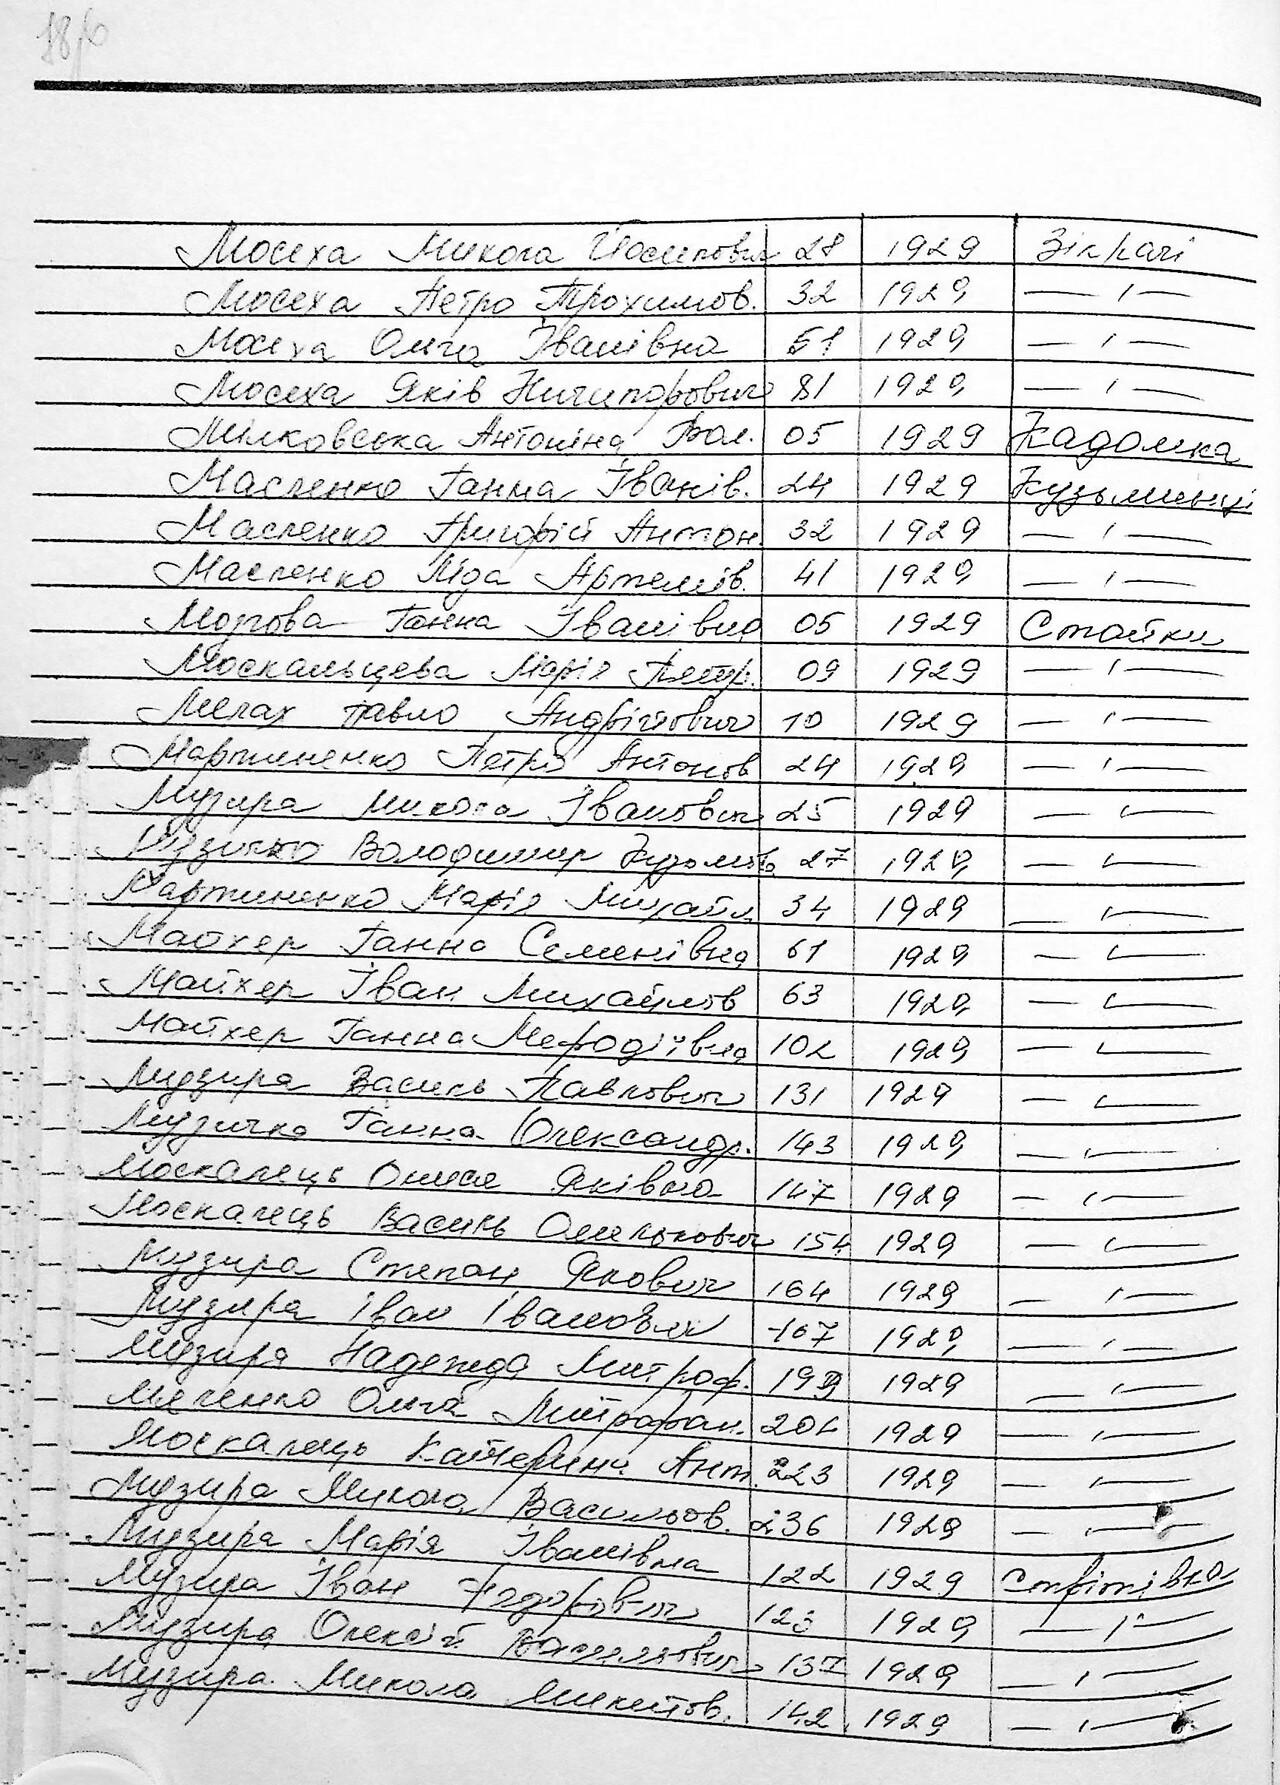 Мосеха Микола Йосипович 28 1929 Зікрачі
Мосеха Петро Трохимов. 32 1929 — " —
Мосеха Ольга Іванівна 51 1929 — " —
Мосеха Яків Ничипорович 81 1929 — " —
Мілковська Антоніна Вол. 05 1929 Кадомка
Масленко Ганна Іванів. 24 1929 Кузьминці
Масленко Григорій Антон. 32 1929 — " —
Масленко Ліда Артемів. 41 1929 — " —
Ганна Іванівна 05 1929 Стайки
Москальцева Марія Петр. 09 1929 — " —
Мелах Павло Андрійович 10 1929 — " —
Мартиненко Петро Антонов 24 1929 — " —
Музира Микола Іванович 25 1929 — " —
Музичко Володимир Кузьмів 27 1929 — " —
Мартиненко Марія Михайл 34 1929 — " —
Майхер Ганна Семенівна 61 1929 — " —
Майхер Іван Михайлов 63 1929 — " —
Майхер Ганна Мефодіївна 102 1929 — " —
Музира Василь Павлович 131 1929 — " —
Музичко Ганна Олександр. 143 1929 — " —
Москалець Онися Яківна 147 1929 — " —
Москалець Василь Омелькович 154 1929 — " —
Музира Степан Якович 164 1929 — " —
Музира Іван Іванович 167 1929 — " —
Музира Надежда Митроф. 199 1929 — " —
Ольга Митрофан. 204 1929 — " —
Москалець Катерина Ант. 223 1929 — " —
Музира Микола Васильов. 236 1929 — " —
Музира Марія Іванівна 122 1929
Музира Іван Федорович 123 1929 — " —
Музира Олексій Васильович 137 1929 — " —
Музира Микола Микитов. 142 1929 — " —